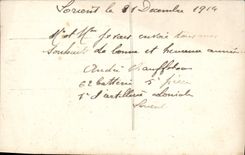 Lorient le 31 Décembre 1914
Mr et Mme je vous envoie tous mes
souhait de bonne et heureuse année
André
62 batterie 5e pièce
1er d'artillerie Coloniale
Lorient